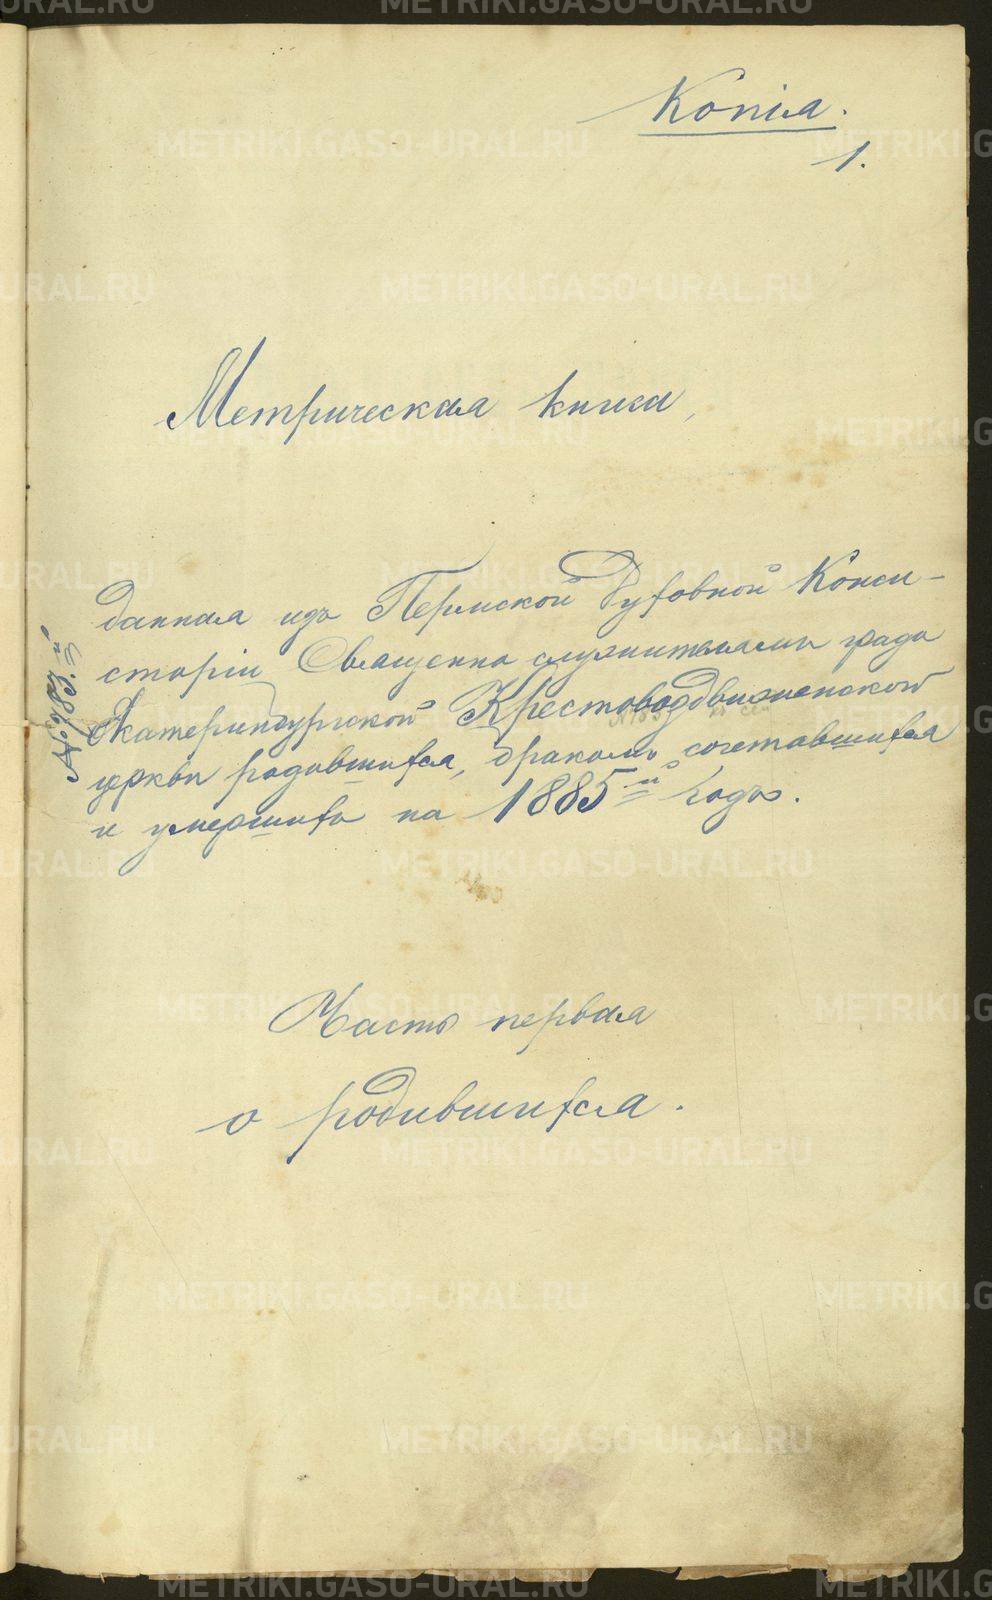 Копія.
1.
Метрическая книга,
данная изъ Пермской Духовной Конси-
сторіи Священно служителямъ града
Екатеринбургской Крестовоздвиженской
церкви родившихся, бракомъ сочетавшихся
и умершихъ на 1885й Годъ.
Часть первая
о родившихся.
METRIKI.GASO-URAL.RU